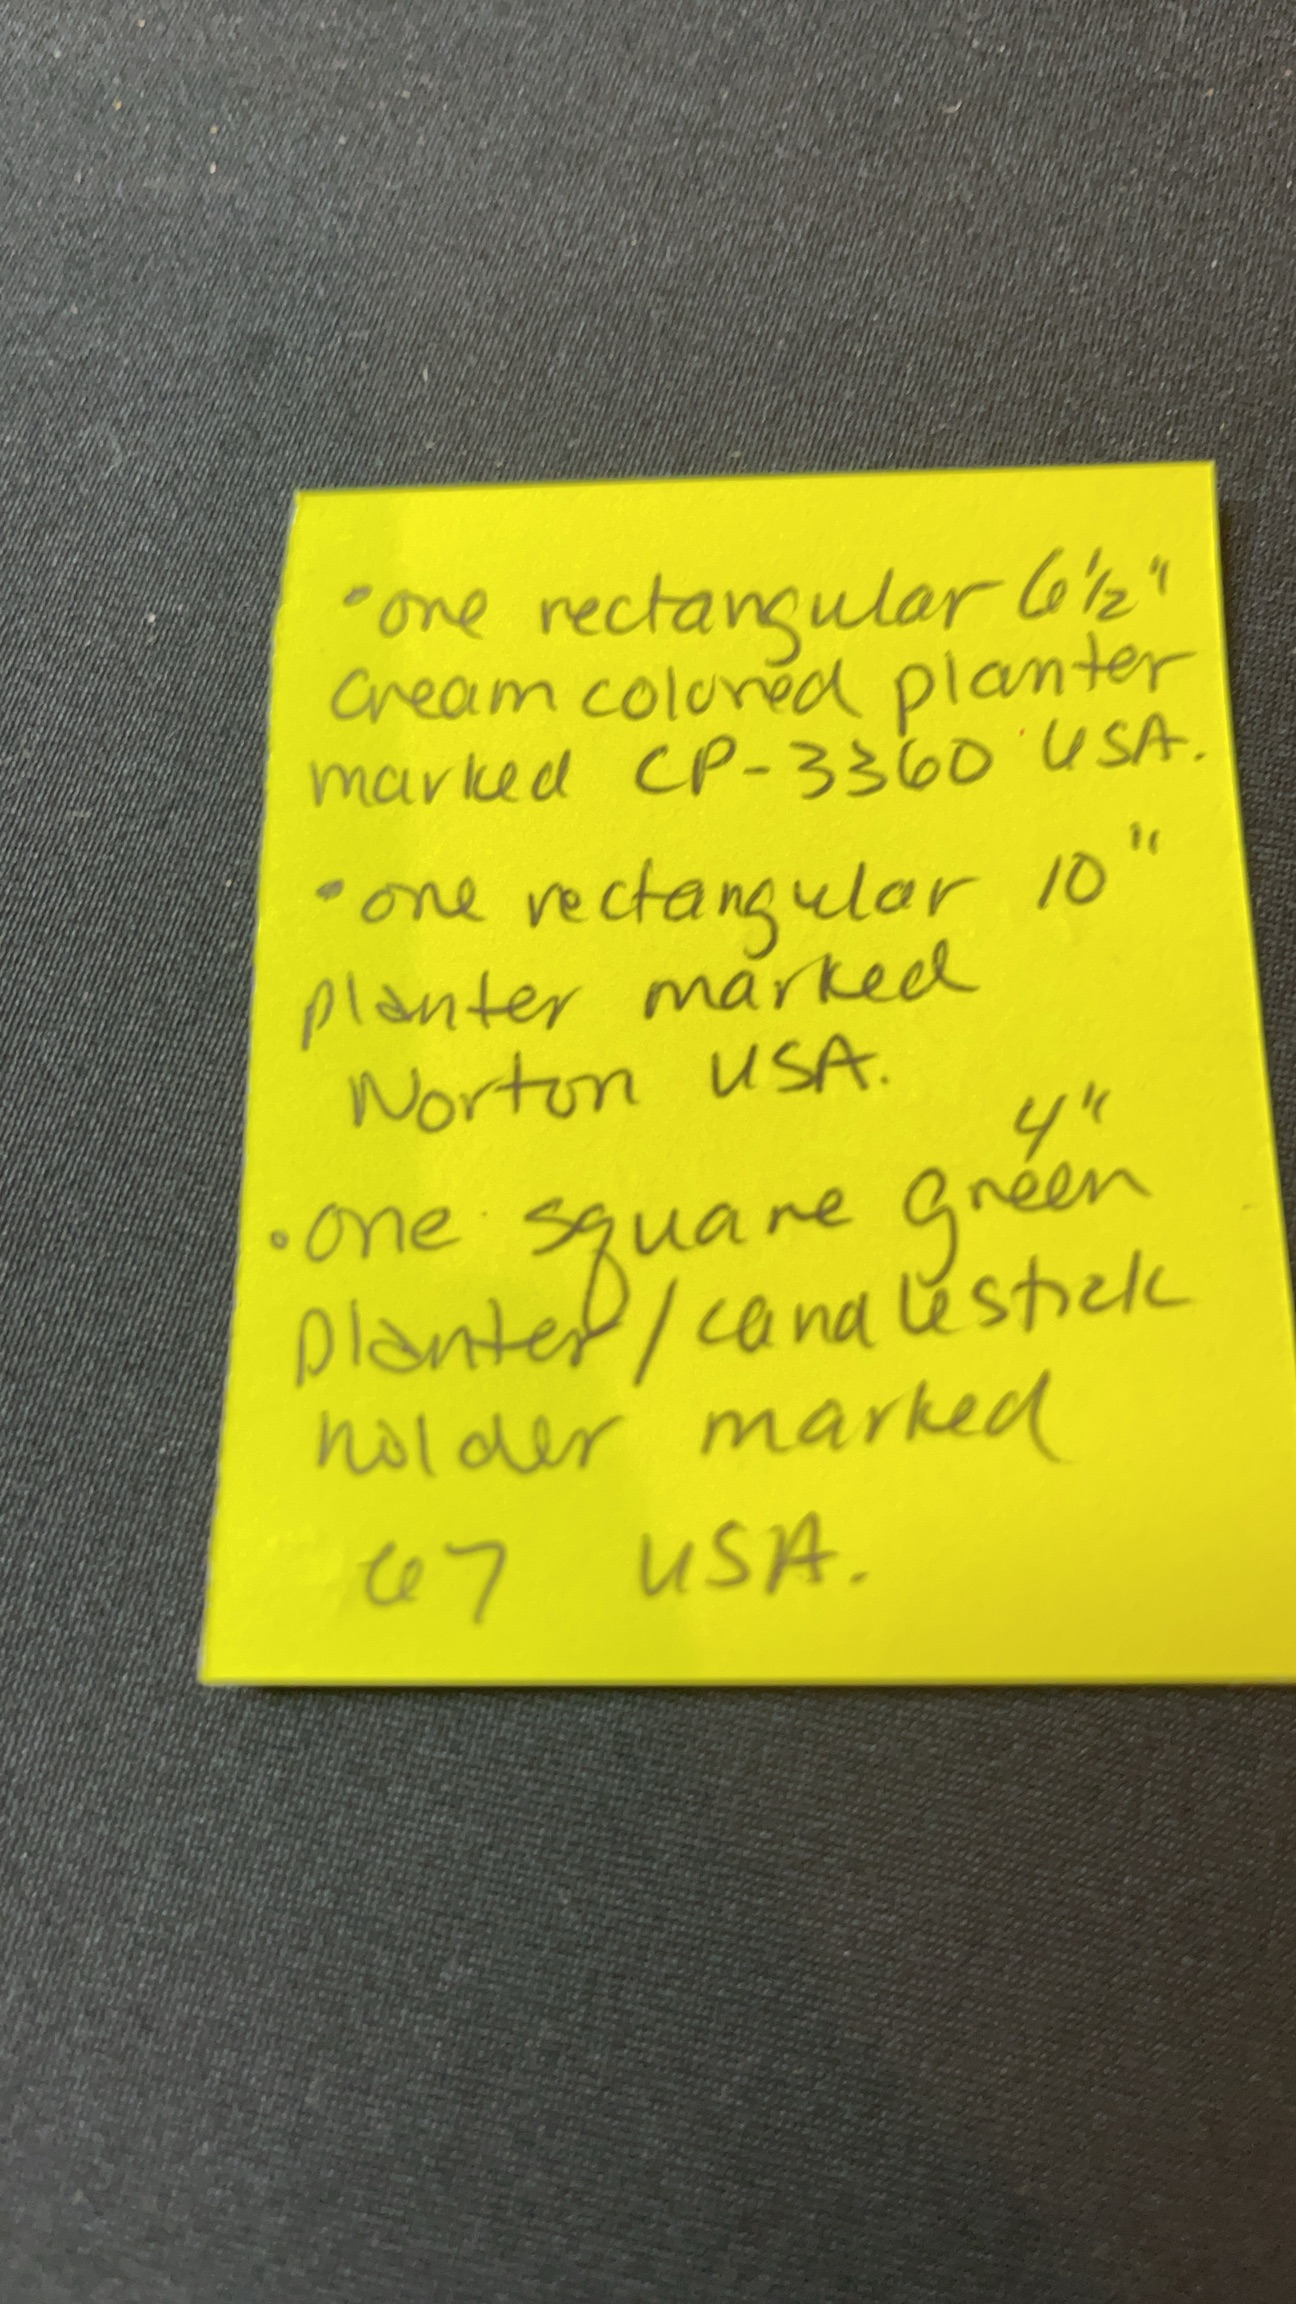 • one rectangular 6½"
cream colored planter
marked CP-3360 USA.
• one rectangular 10"
planter marked
Norton USA.
4"
• one square green
planter/candlestick
holder marked
67 USA.